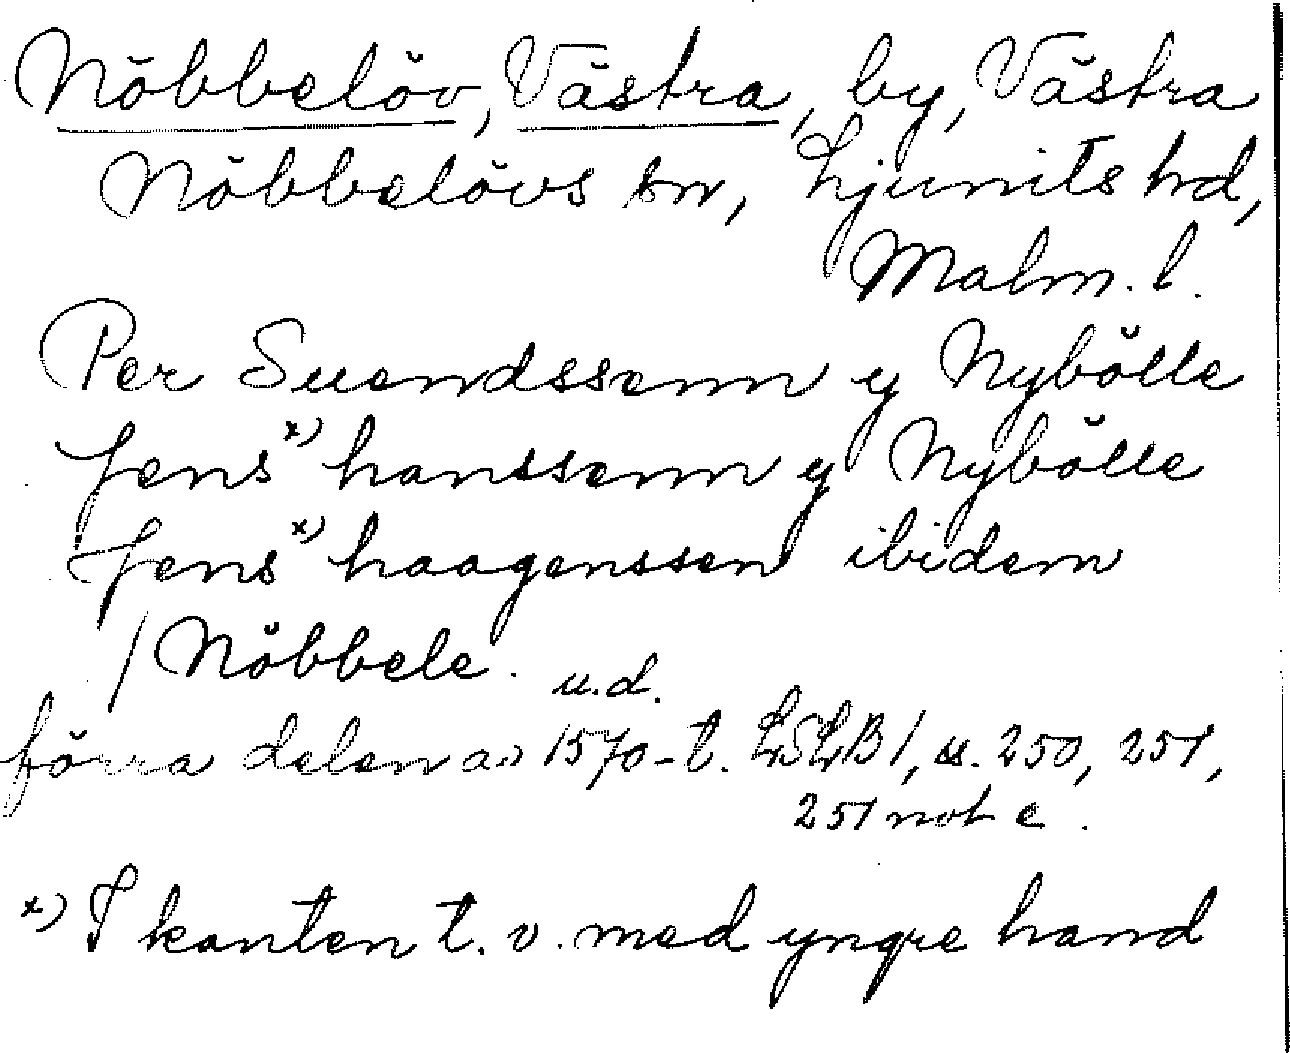 Nöbbelöv, Västra, by, Västra
Nöbbelövs sn, Ljunits hd,
Malm. l.
Per Suendssenn y Nybölle
Jens x) hanssenn y Nybölle
Jens x) haagenssen ibidem
/ Nöbbele. u.d.
förra delen av 1570-t. LSLB 1, s. 250, 251,
251 not c.
x) I kanten t. v. med yngre hand